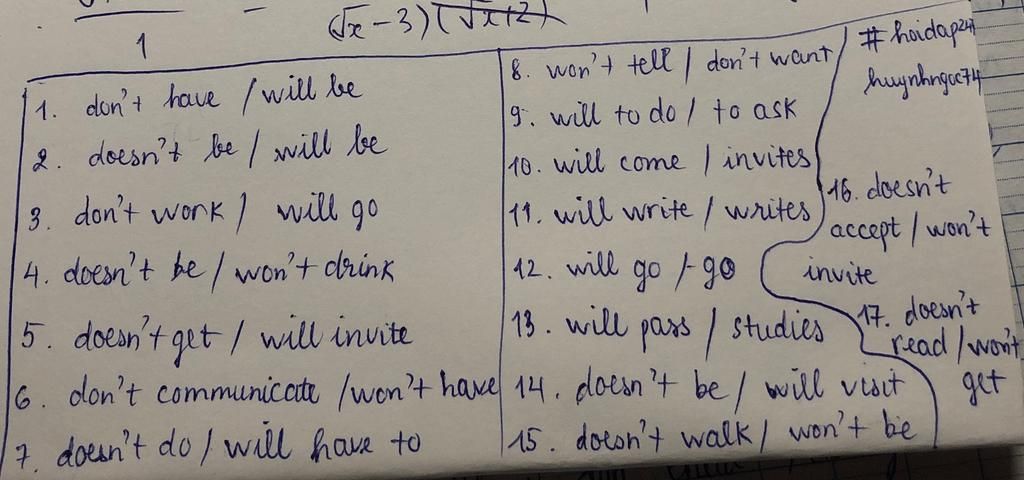 1
(√x - 3)(√x+2)
1. don't have / will be
2. doesn't be / will be
3. don't work / will go
4. doesn't be / won't drink
5. doesn't get / will invite
6. don't communicate / won't have
7. doesn't do / will have to
8. won't tell / don't want
9. will to do / to ask
10. will come / invites
11. will write / writes
12. will go / go
13. will pass / studies
14. doesn't be / will visit
15. doesn't walk / won't be
#hoidap247
huynhngoc74
16. doesn't
accept / won't
invite
17. doesn't
read / won't
get